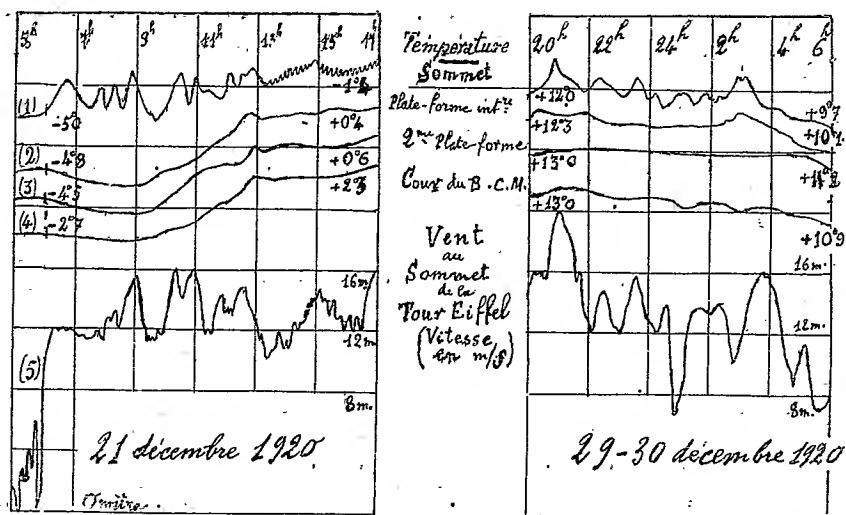 5h 7h 9h 11h 13h 15h 17h
(1)
-5°0
-1°4
(2)
-4°8
+0°4
(3)
-4°5
+0°6
(4)
-2°7
+2°3
16m
12m
(5)
8m.
21 décembre 1920
Température
Sommet
Plate-forme intre
2me Plate-forme
Cour du B.C.M.
Vent
au
Sommet
de la
Tour Eiffel
(Vitesse
en m/s)
20h 22h 24h 2h 4h 6h
+12°0
+9°7
+12°3
+10°1
+13°0
+13°0
+10°9
16m.
12m.
8m.
29-30 décembre 1920